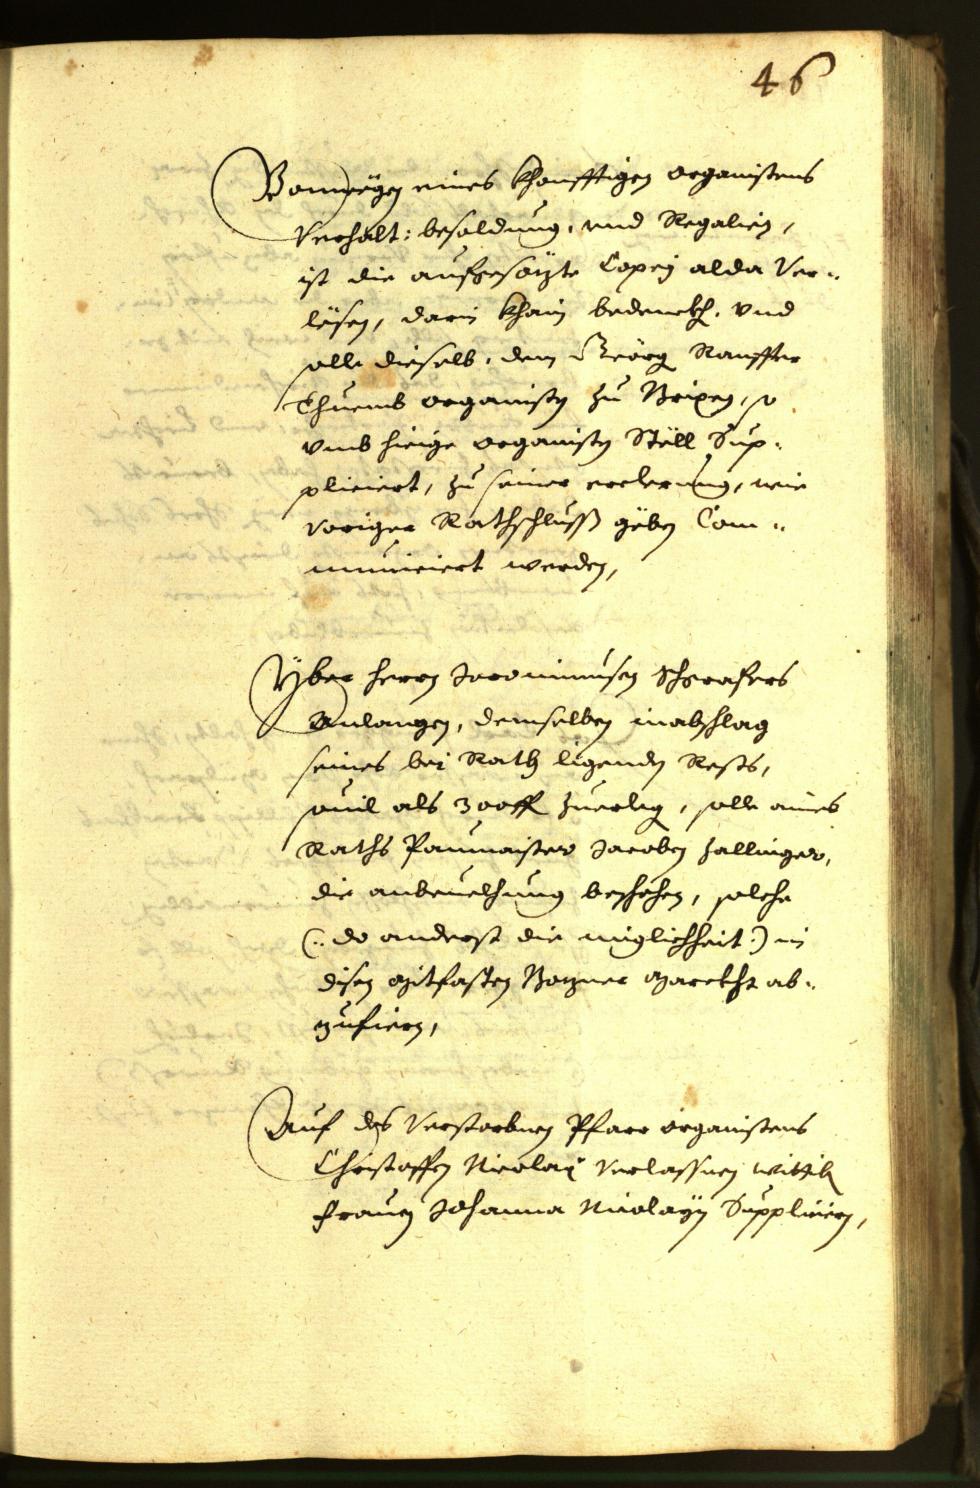 46
Vonwegen eines khonfftigen organistens
verhalt: besoldung, und Regalien,
ist die aufgesezte Copey alda ver-
lösen, darin khain bedenckh, und
solle dieselb, dem Geörg Rauffter
Thuemb organisten zu Brixen, so
umb hieige organisten Stöll Sup-
pliciert, zu seiner erclerung, wie
voriger Rathschlusß geben Com-
municiert werden,
Yber herrn Jeronimusen Schgrafers
Anlangen, demselben inabschlag
seines bei Rath ligenden Rests,
souil als 300 ff zuerleg, solle aines
Raths Paumaister Jacoben Zallinger,
die anbeuelhung beschehen, solche
(: do anderst die miglichkeit :) in
disen Mitfasten Bozner Marckht ab-
zufiern,
Auf des verstorbnen Pfarr organistens
Christoffen Nicolai verlassnen wittib
frauen Johanna Nicolayin Suppliciern,